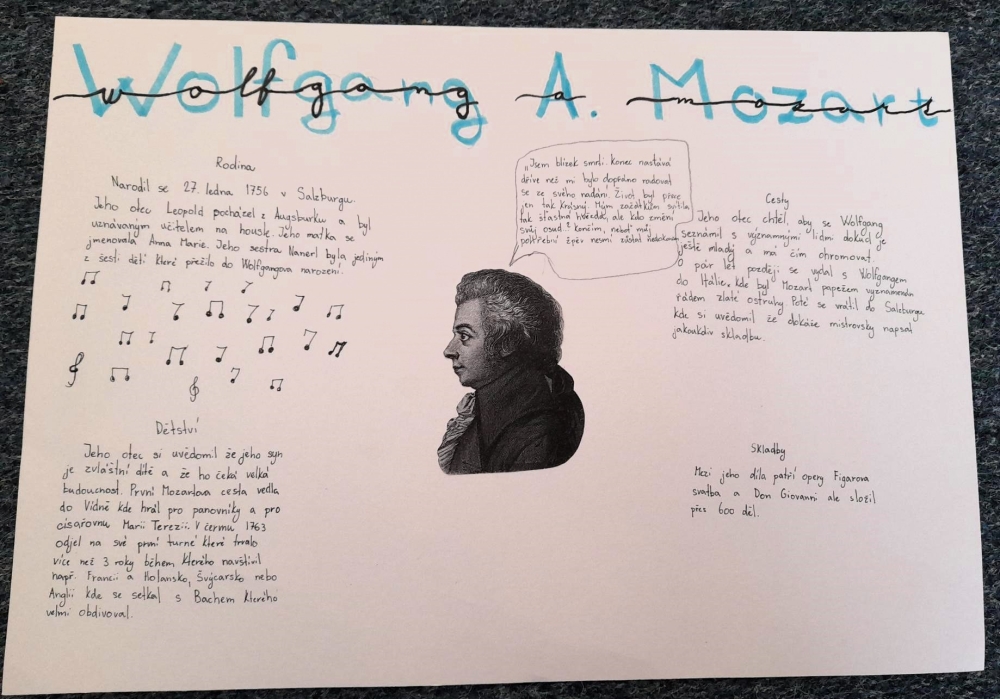 Wolfgang A. Mozart
wolfgang a mozart
Rodina
Narodil se 27. ledna 1756 v Salzburgu.
Jeho otec Leopold pocházel z Augsburku a byl
uznávaným učitelem na housle. Jeho matka se
jmenovala Anna Marie. Jeho sestra Nanerl byla jediným
z šesti dětí které přežilo do Wolfgangova narození.
Dětství
Jeho otec si uvědomil že jeho syn
je zvláštní dítě a že ho čeká velká
budoucnost. První Mozartova cesta vedla
do Vídně kde hrál pro panovníky a pro
císařovnu Marii Terezii. V červnu 1763
odjel na své první turné které trvalo
více než 3 roky během kterého navštívil
např. Francii a Holansko, Švýcarsko nebo
Anglii kde se setkal s Bachem kterého
velmi obdivoval.
„Jsem blízek smrti konec nastává
dříve než mi bylo dopřáno radovat
se ze svého nadání. Život byl přece
jen tak krásný. Mým začátkům svítila
tak šťastná hvězda, ale kdo změní
svůj osud? končím, neboť můj
pohřební zpěv nesmí zůstat
Cesty
Jeho otec chtěl, aby se Wolfgang
seznámil s významnými lidmi dokud je
ještě mladý a má čím ohromovat.
O pár let později se vydal s Wolfgangem
do Itálie, kde byl Mozart papežem vyznamenán
řádem zlaté ostruhy Poté se vrátil do Salzburgu
kde si uvědomil že dokáže mistrovsky napsat
jakoukoliv skladbu.
Skladby
Mezi jeho díla patří opery Figarova
svatba a Don Giovanni ale složil
přes 600 děl.